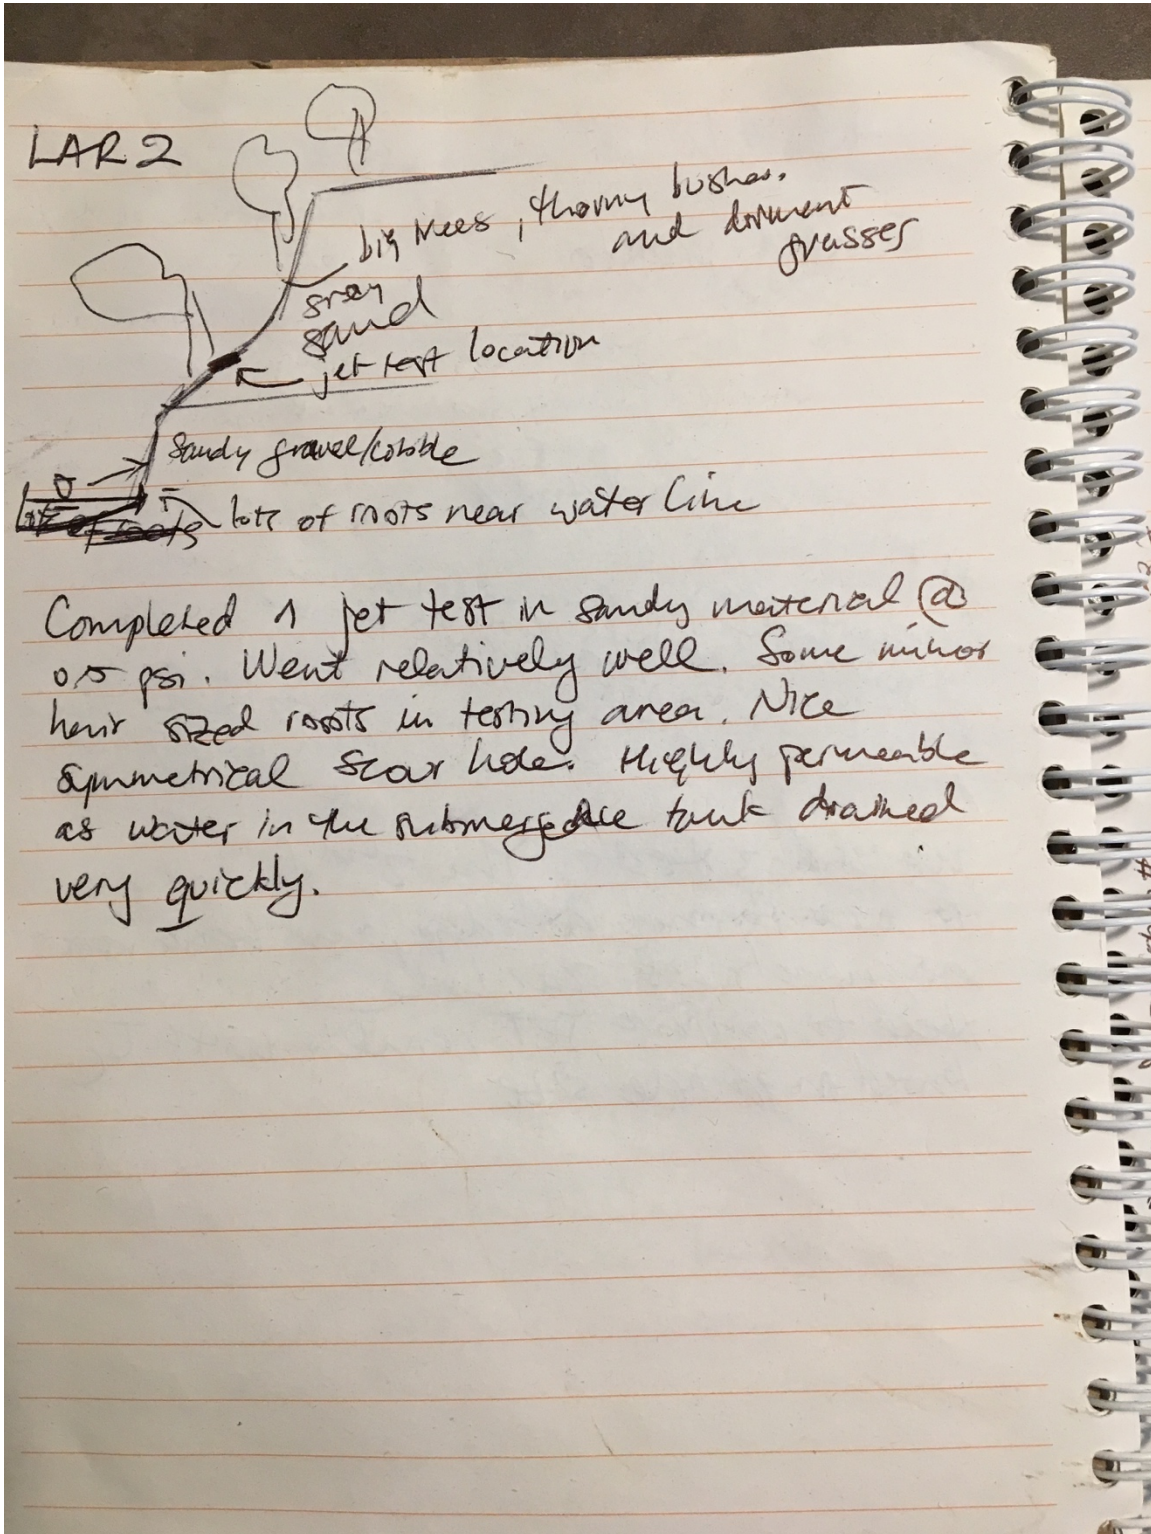 LAR 2
big trees, thorny bushes.
and dormant
grasses
gray
sand
jet test location
Sandy gravel/cobble
lots of roots near water line
Completed 1 jet test in sandy material @
0.5 psi. Went relatively well. Some minor
hair sized roots in testing area. Nice
symmetrical scour hole. Highly permeable
as water in the submergence tank drained
very quickly.